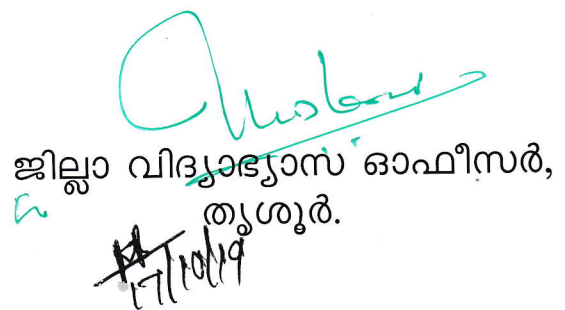 ജില്ലാ വിദ്യാഭ്യാസ ഓഫീസർ,
തൃശൂർ.
17/10/19